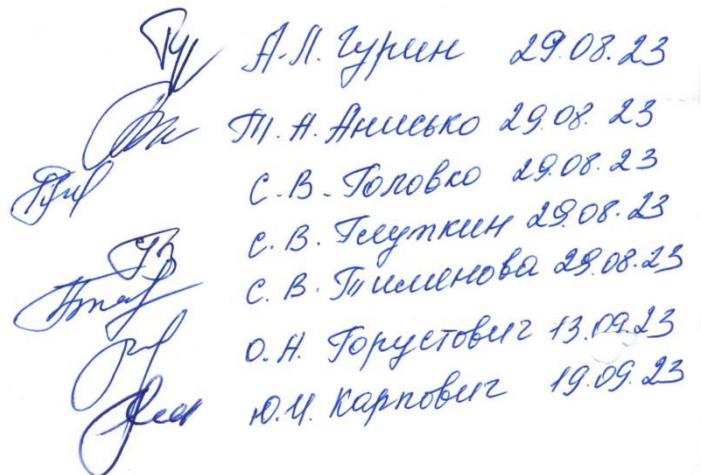 А.Л. Гурин 29.08.23
Т.Н. Анисько 29.08.23
С.В. Головко 29.08.23
С.В. 29.08.23
С.В. Тименова 29.08.23
О.Н. Горустович 13.09.23
Ю.И. Карпович 19.09.23